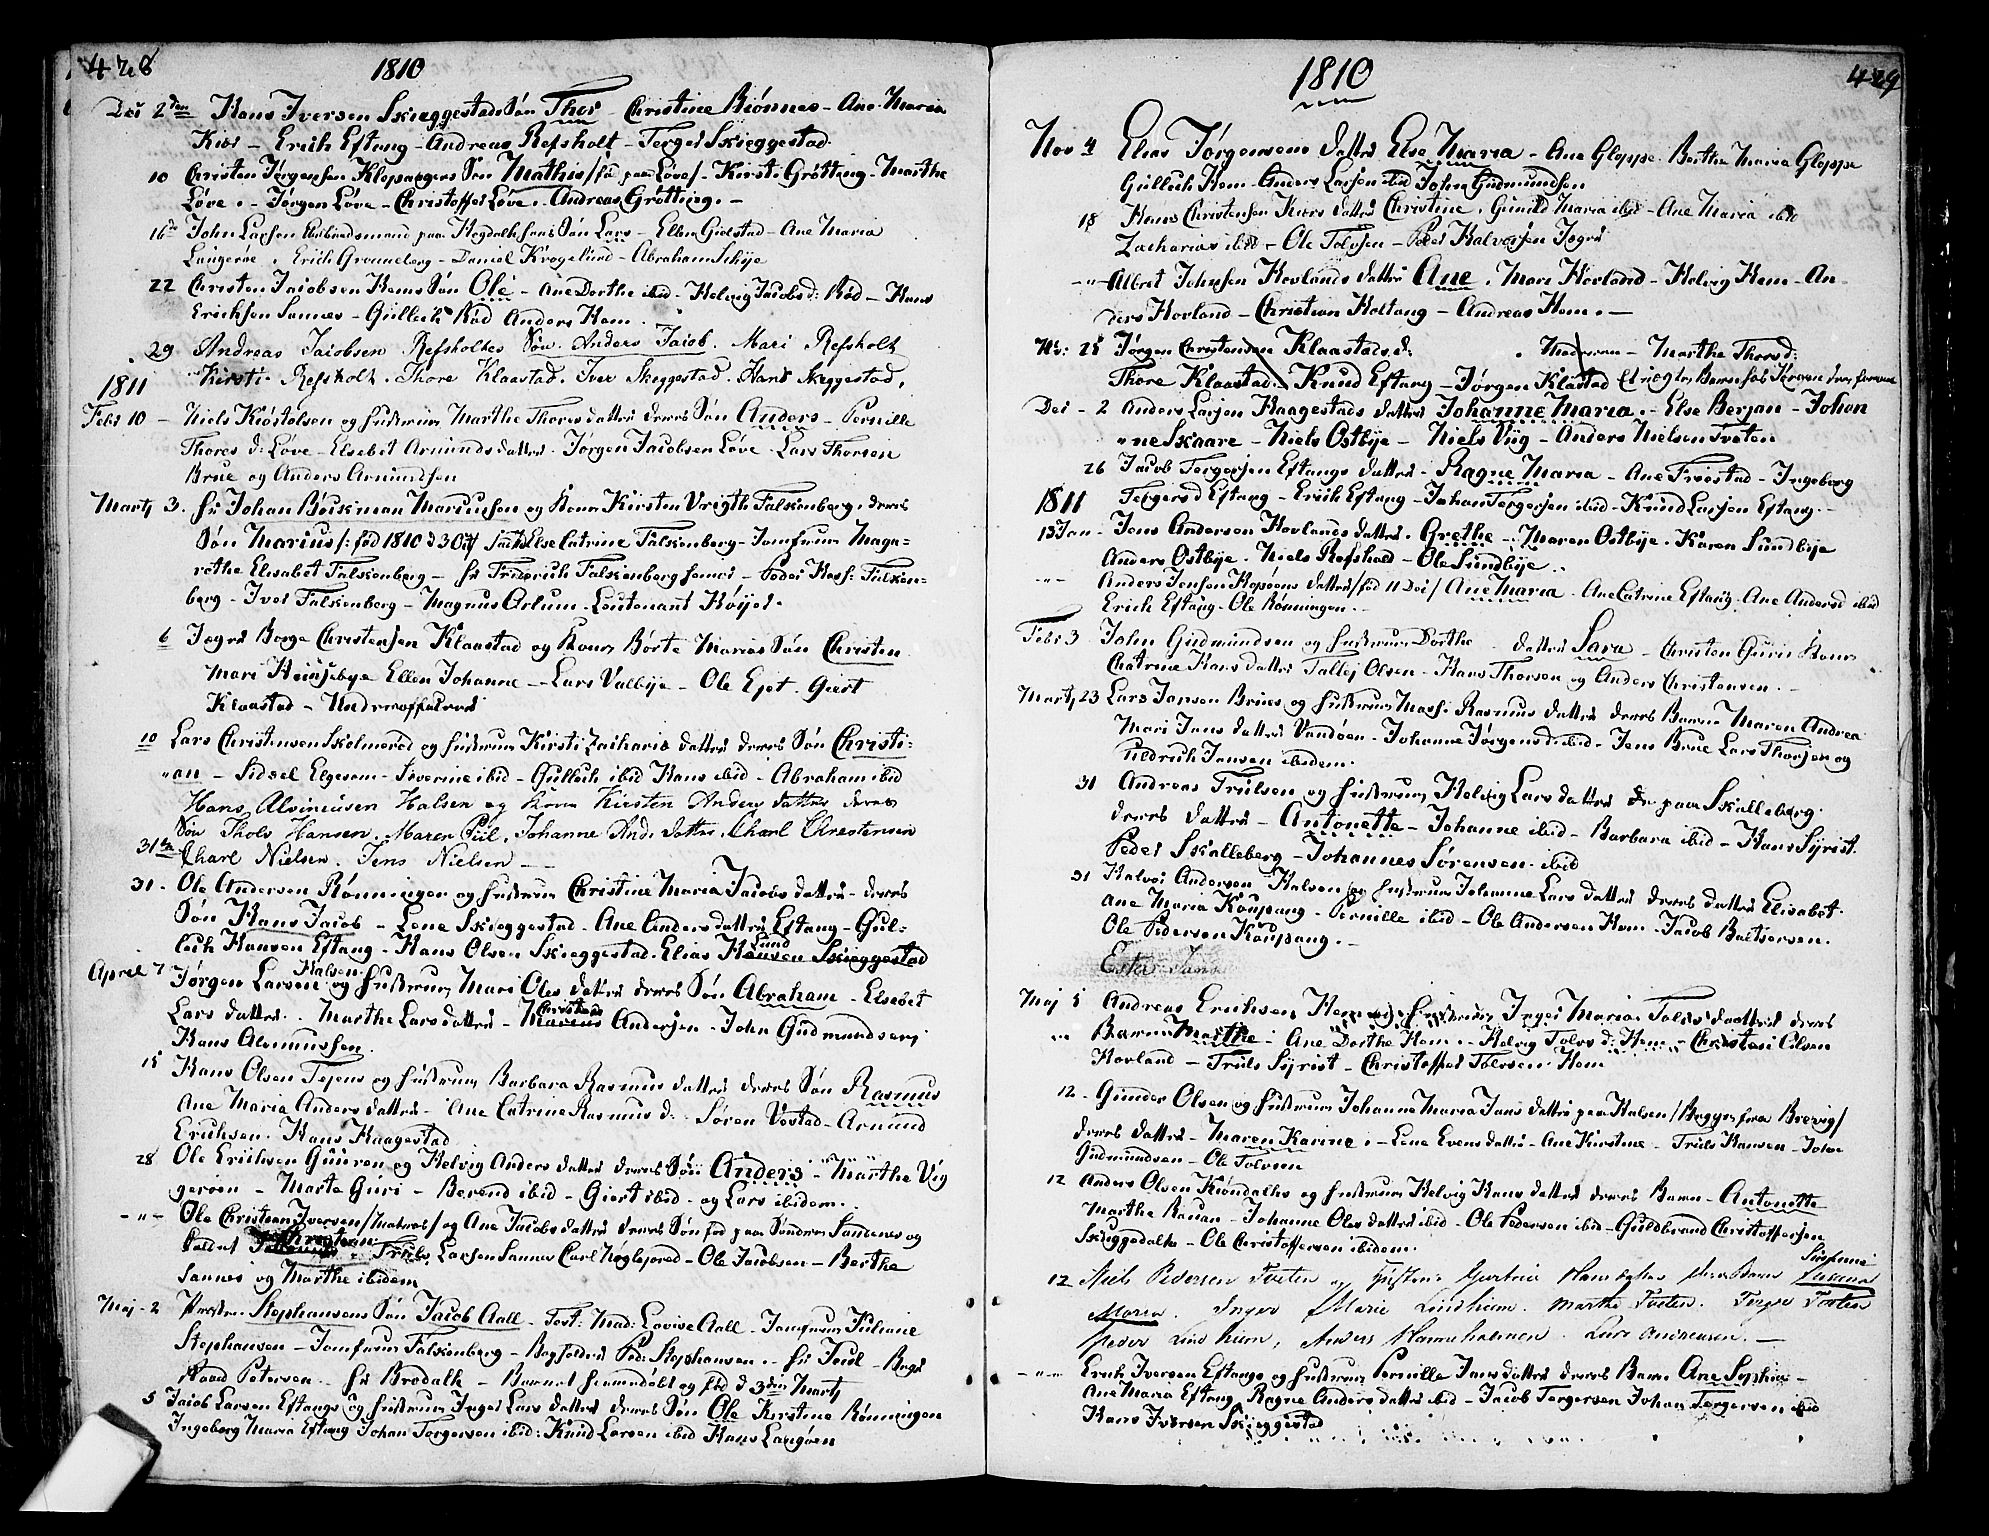 428
1810
Dec 2den Hans Iversen Skieggestads Søn Thor - Christine Biónnes - Ane Maria
Kiær - Erich Eftang - Andreas Refsholt - Terger Skieggestad.
10 Christen Jørgensen Klopangers Søn Mathis /: fød paa Løve/ - Kirsti Grótting - Marthe
Løve. - Jørgen Løve - Christoffer Løve. Andreas Grótting. -
16de John Larsen paa Søn Lars - Ellen Gielstad - Ane Maria
Langerøe. Erich Gronneberg - Daniel Krogelund - Abraham Schije
22 Christen Jacobsen Hems Søn Ole - Ane Dorthe ibid - Helvig Jacobsd: Rød - Hans
Ericksen Sannes - Gullich Rød Anders Hem.
29 Andreas Jacobsen Refsholtes Søn. Anders Jacob. Mari Refsholt
1811 Kirsti Refsholt. Thore Klaastad. Iver Skeggestad. Hans Skeggestad.
Febr 10 - Niels Kióstolsen og hustrue Marthe Thores datter deres Søn Anders - Pernille
Thores d: Løve - Elsebet Amunds datter. Jørgen Jacobsen Løve. Lars Thorsen
Brue og Anders Amundsen
Martj 3. Hr Johan Mariusen og Kone Kirsten Vrigth Falkenberg, deres
Søn Marius /: fød 1810 d 30 Else Catrine Falkenberg - Jomfrue Maga=
rethe Elisabet Falkenberg - Hr Friderich Falkenberg senior - Peder Falken=
berg - Iver Falkenberg - Magnus Orlum - Leutenant Høyer.
6 Jægr Borge Christensen Klaastad og Kone Børte Marias Søn Christen
Mari Huusebye Ellen Johanne - Lars Valbye - Ole Giert
Klaastad - Underofficerer
10 Lars Christensen Skolmeród og hustrue Kirsti Zacharia datter deres Søn Christi=
"an - Sidsel Elgesem - Siverine ibid - Gullich ibid Hans ibid - Abraham ibid
Hans Halsen og Kone Kirsten Anders datter deres
Søn Thols Hansen. Maren Piil. Johanne And: datter. Charl Chrestensen
31te Charl Nielsen. Jens Nielsen -
31. Ole Andersen Rønninger og hustrue Christine Maria Jacobs datter - deres
Søn Hans Jacob - Lene Skieggestad - Ane Anders datter Eftang - Gul=
lich Hansen Eftang - Hans Olsen Skieggestad. Elias Hansen Lund Skieggestad
April 7 Jørgen Larsen Halsen og hustrue Mari Oles datter deres Søn Abraham - Elsebet
Lars datter. Marthe Lars datter - Christen Andersen - John Gudmundsen
Hans Alemussen.
15 Hans Olsen Tejens og hustrue Barbara Rasmus datter deres Søn Rasmus
Ane Maria Anders datter - Ane Catrine Rasmus d: Søren Vestad - Amund
Erichsen. Hans Haagestad
28 Ole Erichsen Guuren og Helvig Anders datter deres Søn Anders - Marthe Vig
gersen - Marte Guri - Berend ibid - Giert ibid - og Lars ibidem.
- " - Ole Christian Iversen /Matros/ og Ane Jacobs datter deres Søn fød paa Søndre Sandenes og
kaldet Christen Truls Larsen Sannes Carl Nøglegored - Ole Jacobsen - Berthe
Sannes og Marthe ibidem
Maj - 2 Præsten Stephansens Søn Jacob Aall - Fort: Mad: Lovise Aall - Jomfrue Juliane
Stephansen - Jomfrue Falkenberg - Bogholder Ped: Stephansen. - Hr Juul - Begr
Petersen - Hr Bredalk - Barnet hiemmedøbt og fød d 3die Martj
5 Jacob Larsen Eftangs og hustrue Inger Lars datter deres Søn Ole - Kirstine Rønningen
Ingeborg Maria Eftang Johan Torgersen ibid: Knud Larsen ibid Hans Langóen
1810
429
Nov 4 Elias Jørgensens datter Else Maria - Ane Gloppe. Berthe Maria Gloppe
Gullich Hem - Anders Larsen ibid John Gudmundsen
18 Hans Christensen Kiærs datter Christine. Gunild Maria ibid - Ane Maria ibid
Zacharias ibid - Ole Tolvsen - Peder Halvorsen Jegr
- " - Albret Johnsen Hovlands datter Ane. Mari Hovland - Helvig Hem - An=
ders Hovland - Christian Holtang - Andreas Hem. -
25 Jørgen Christensen Klaastads d: Madamm - Marthe Thorsd:
Thore Klaastad. Knud Eftang - Jørgen Klastad
Dec - 2 Anders Larsen Haagestads datter Johanne Maria. - Else Berjan - Johan
"ne Skaare - Niels Ostbye - Niels Viig - Anders Nielsen Tveten
26 Jacob Tergersen Eftangs datter - Ragne Maria - Ane Frøstad - Ingeborg
1811 Tergersd Eftang - Erich Eftang - Johan Tergersen ibid - Knud Larsen Eftang. -
13 Jan - Jens Andersen Hovlands datter. Grethe - Maren Ostbye. Karen Sundbye
Anders Ostbye. Niels Refshold - Ole Sundbye. .
- " - Anders Jensen Kopsøens datter /fød 11 Dec/ Ane Maria. Ane Catrine Eftang. Ane Andersd ibid
Erich Eftang. Ole Rønningen. -
Febr 3 John Gudmundsen og hustrue Dorthe datter Sara - Christen Guris Kone
Chatrine Hans datter Tallef Olsen - Hans Thorsen og Anders Christensen. -
Martj 23 Lars Jansen Brues og hustrue Rasmus datter deres Barn Maren Andrea
Mari Jans datter Vandøen - Johanne Jørgensd: ibid - Jens Brue Lars Thorsen og
Jansen ibidem.
31 Andreas Trulsen og hustrue Helvig Lars datter paa Skalleberg
deres datter - Antonette - Johanne ibid - Barbara ibid - Hans Syrist
Peder Skalleberg - Johannes Sørensen ibid
31 Halvor Andersen Halsen og hustrue Johanne Lars datter deres datter Elisabet.
Ane Maria Koupang - Pernille ibid - Ole Andersen Hem - Jacob Baltsersen.
Ole Pedersen Koupang. -
Ester Jans
Maj 5 Andreas Erichsen Hem og hustrue Inger Maria Tolvs datter deres
Barn Marthe - Ane Dorthe Hem. - Helvig Tolvs d: Hem - Christen Olsen
Hovland - Truls Syrist - Christoffer Tolvsen Hem
12. Gunder Olsen og hustrue Johanne Maria Jans datter paa Halsen /Begge fra Brevig/
deres datter - Maren Karine. - Lene Evens datter - Ane Kirstine - Truls Hansen - John
Gudmundsen - Ole Tolvsen
12 Anders Olsen Kióndalles og hustrue Helvig Hans datter deres Barn - Antonette
Marthe Rauan - Johanne Oles datter ibid - Ole Pedersen ibid - Guldbrand Christoffersen
Skuggedalk - Ole Christoffersen ibidem.
12 Niels Pedersen Tveten og Hustrue Hansdatter deres Barn Susanna
Maria. Inger Marie Lindheim. Marthe Tveten. Terger Tveten
Peder Lindheim, Anders Lars Andreasen. -
- " - Erich Iversen Eftangs og hustrue Pernille Jans datter deres Barn Ane Sophie -
Ane Maria Eftang. Ragne Anders datter ibid - Jacob Tergersen Johan Tergersen ibid
Hans Iversen Skieggestad